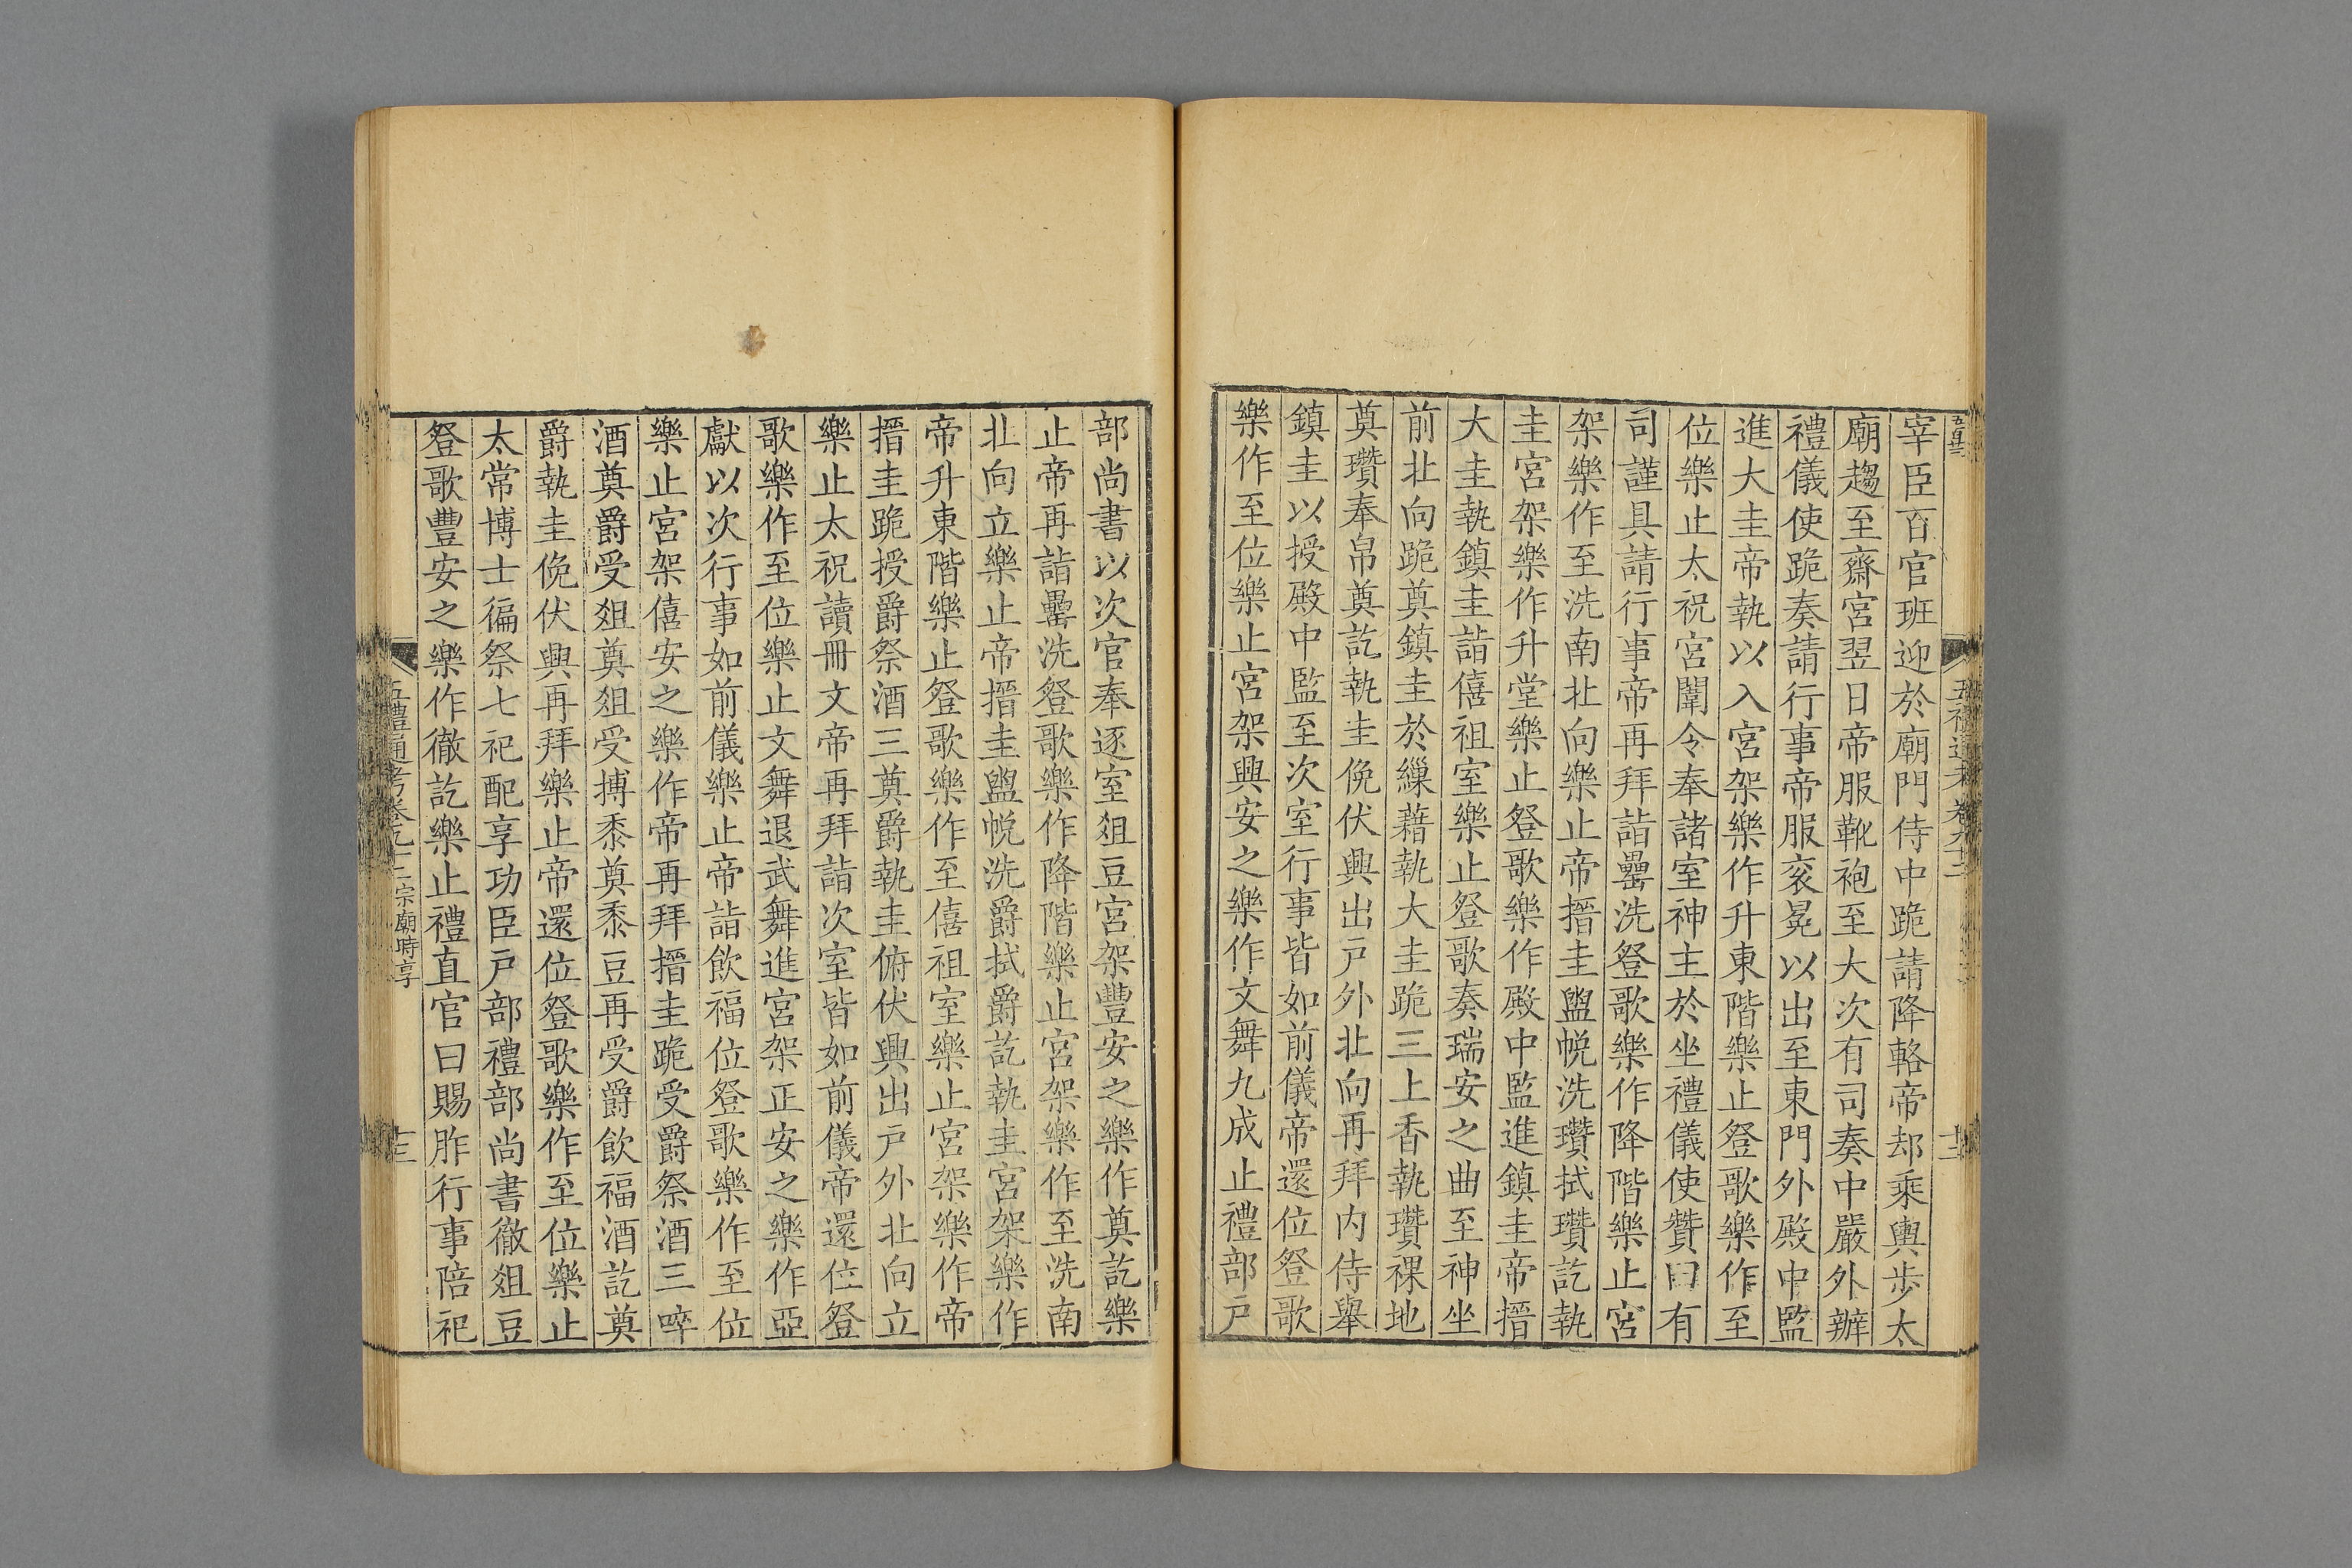 宰臣百官班迎於廟門侍中跪請降輅帝却乘輿步太
廟趨至齋宮翌日帝服靴袍至大次有司奏中嚴外辦
禮儀使跪奏請行事帝服衮冕以出至東門外殿中監
進大圭帝執以入宮架樂作升東階樂止登歌樂作至
位樂止太祝宮闈令奉諸室神主於坐禮儀使贊曰有
司謹具請行事帝再拜詣罍洗登歌樂作降階樂止宮
架樂作至洗南北向樂止帝搢圭盥帨洗瓚拭瓚訖執
圭宮架樂作升堂樂止登歌樂作殿中監進鎮圭帝搢
大圭執鎮圭詣僖祖室樂止登歌奏瑞安之曲至神坐
前北向跪奠鎮圭於繅藉執大圭跪三上香執瓚祼地
奠瓚奉帛奠訖執圭俛伏興出戶外北向再拜內侍舉
鎮圭以授殿中監至次室行事皆如前儀帝還位登歌
樂作至位樂止宮架興安之樂作文舞九成止禮部戶
部尚書以次官奉逐室俎豆宮架豐安之樂作奠訖樂
止帝再詣罍洗登歌樂作降階樂止宮架樂作至洗南
北向立樂止帝搢圭盥帨洗爵拭爵訖執圭宮架樂作
帝升東階樂止登歌樂作至僖祖室樂止宮架樂作帝
搢圭跪授爵祭酒三奠爵執圭俯伏興出戶外北向立
樂止太祝讀冊文帝再拜詣次室皆如前儀帝還位登
歌樂作至位樂止文舞退武舞進宮架正安之樂作亞
獻以次行事如前儀樂止帝詣飲福位登歌樂作至位
樂止宮架僖安之樂作帝再拜搢圭跪受爵祭酒三啐
酒奠爵受俎奠俎受摶黍奠黍豆再受爵飲福酒訖奠
爵執圭俛伏興再拜樂止帝還位登歌樂作至位樂止
太常博士徧祭七祀配享功臣戶部禮部尚書徹俎豆
登歌豐安之樂作徹訖樂止禮直官曰賜胙行事陪祀
五禮通考卷九十二宗廟時享